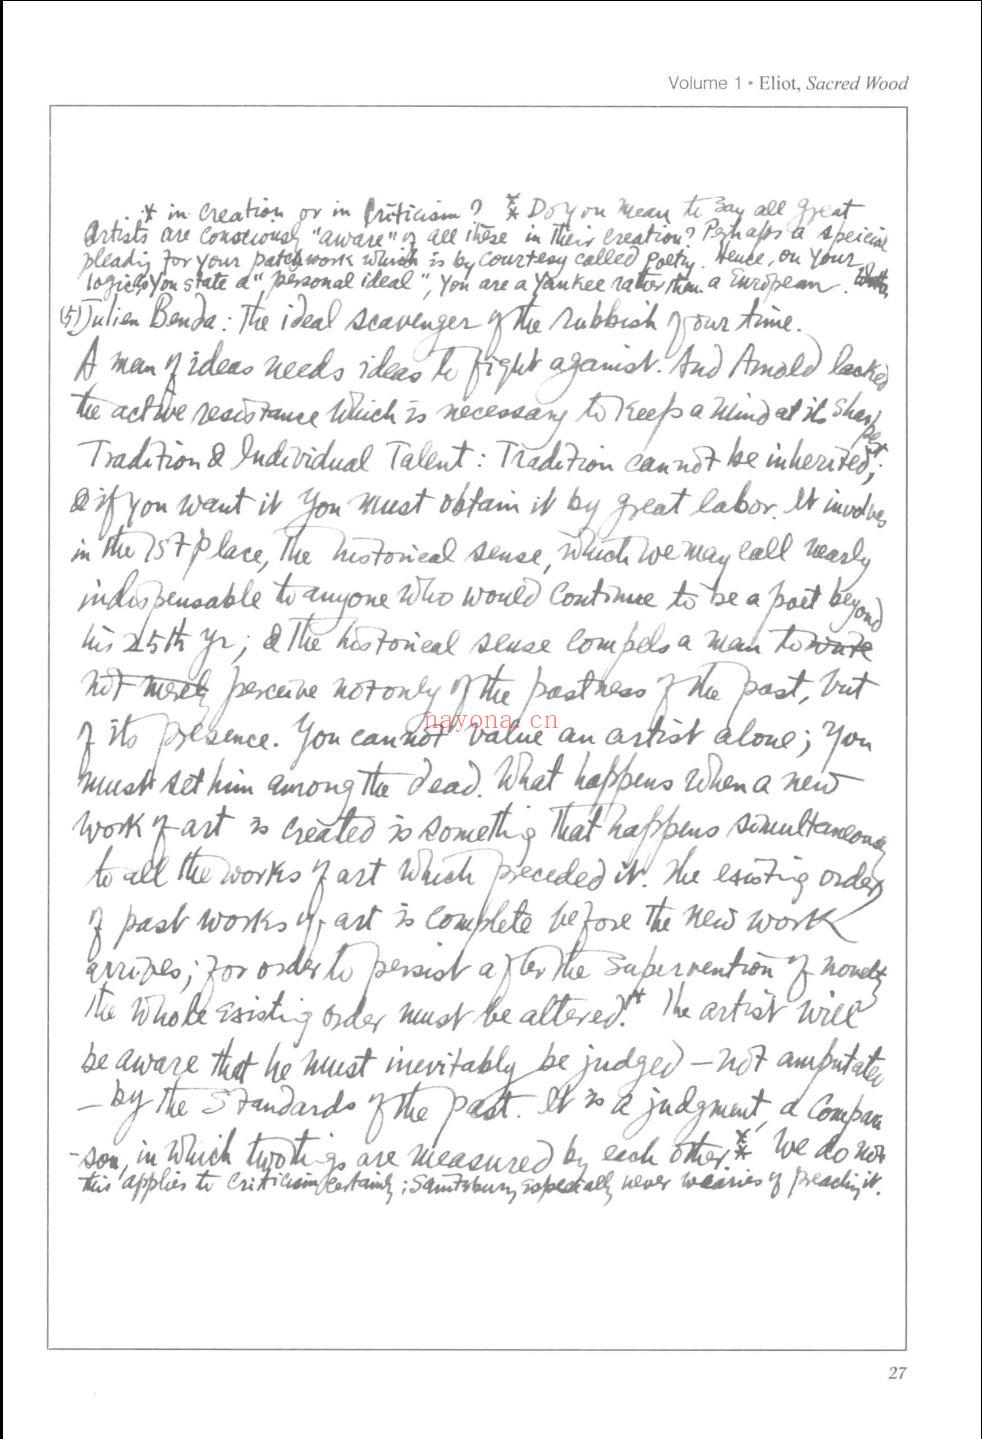 Volume 1 • Eliot, Sacred Wood
* in creation or in Criticism? ** Do you mean to say all great
Artists are consciously "aware" of all these in their creation? Perhaps a speicial
pleadig for your patchwork which is by courtesy called poetry. Hence, on your
logic, you state a "personal ideal", you are a Yankee rather than a European.
(5) Julien Benda: The ideal scavenger of the rubbish of our time.
A man of ideas needs ideas to fight against. And Arnold lacked
the active resistance which is necessary to keep a mind at its sharpest.
Tradition & Individual Talent: Tradition cannot be inherited;
& if you want it you must obtain it by great labor. It involves
in the 1st place, the historical sense, which we may call nearly
indispensable to anyone who would continue to be a poet beyond
his 25th yr; & the historical sense compels a man to write
not merely perceive not only of the pastness of the past, but
of its presence. You cannot value an artist alone; you
nayona.cn
must set him among the dead. What happens when a new
work of art is created is somethig that happens simultaneously
to all the works of art which preceded it. The existing order
of past works of art is complete before the new work
arrives; for order to persist after the supervention of novelty
the whole existing order must be altered.** The artist will
be aware that he must inevitably be judged — not amputated
— by the standards of the past. It is a judgment, a compari
-son, in which two things are measured by each other.** We do not
this applies to criticism certainly; Saintsbury especially never wearies of preachig it.
27